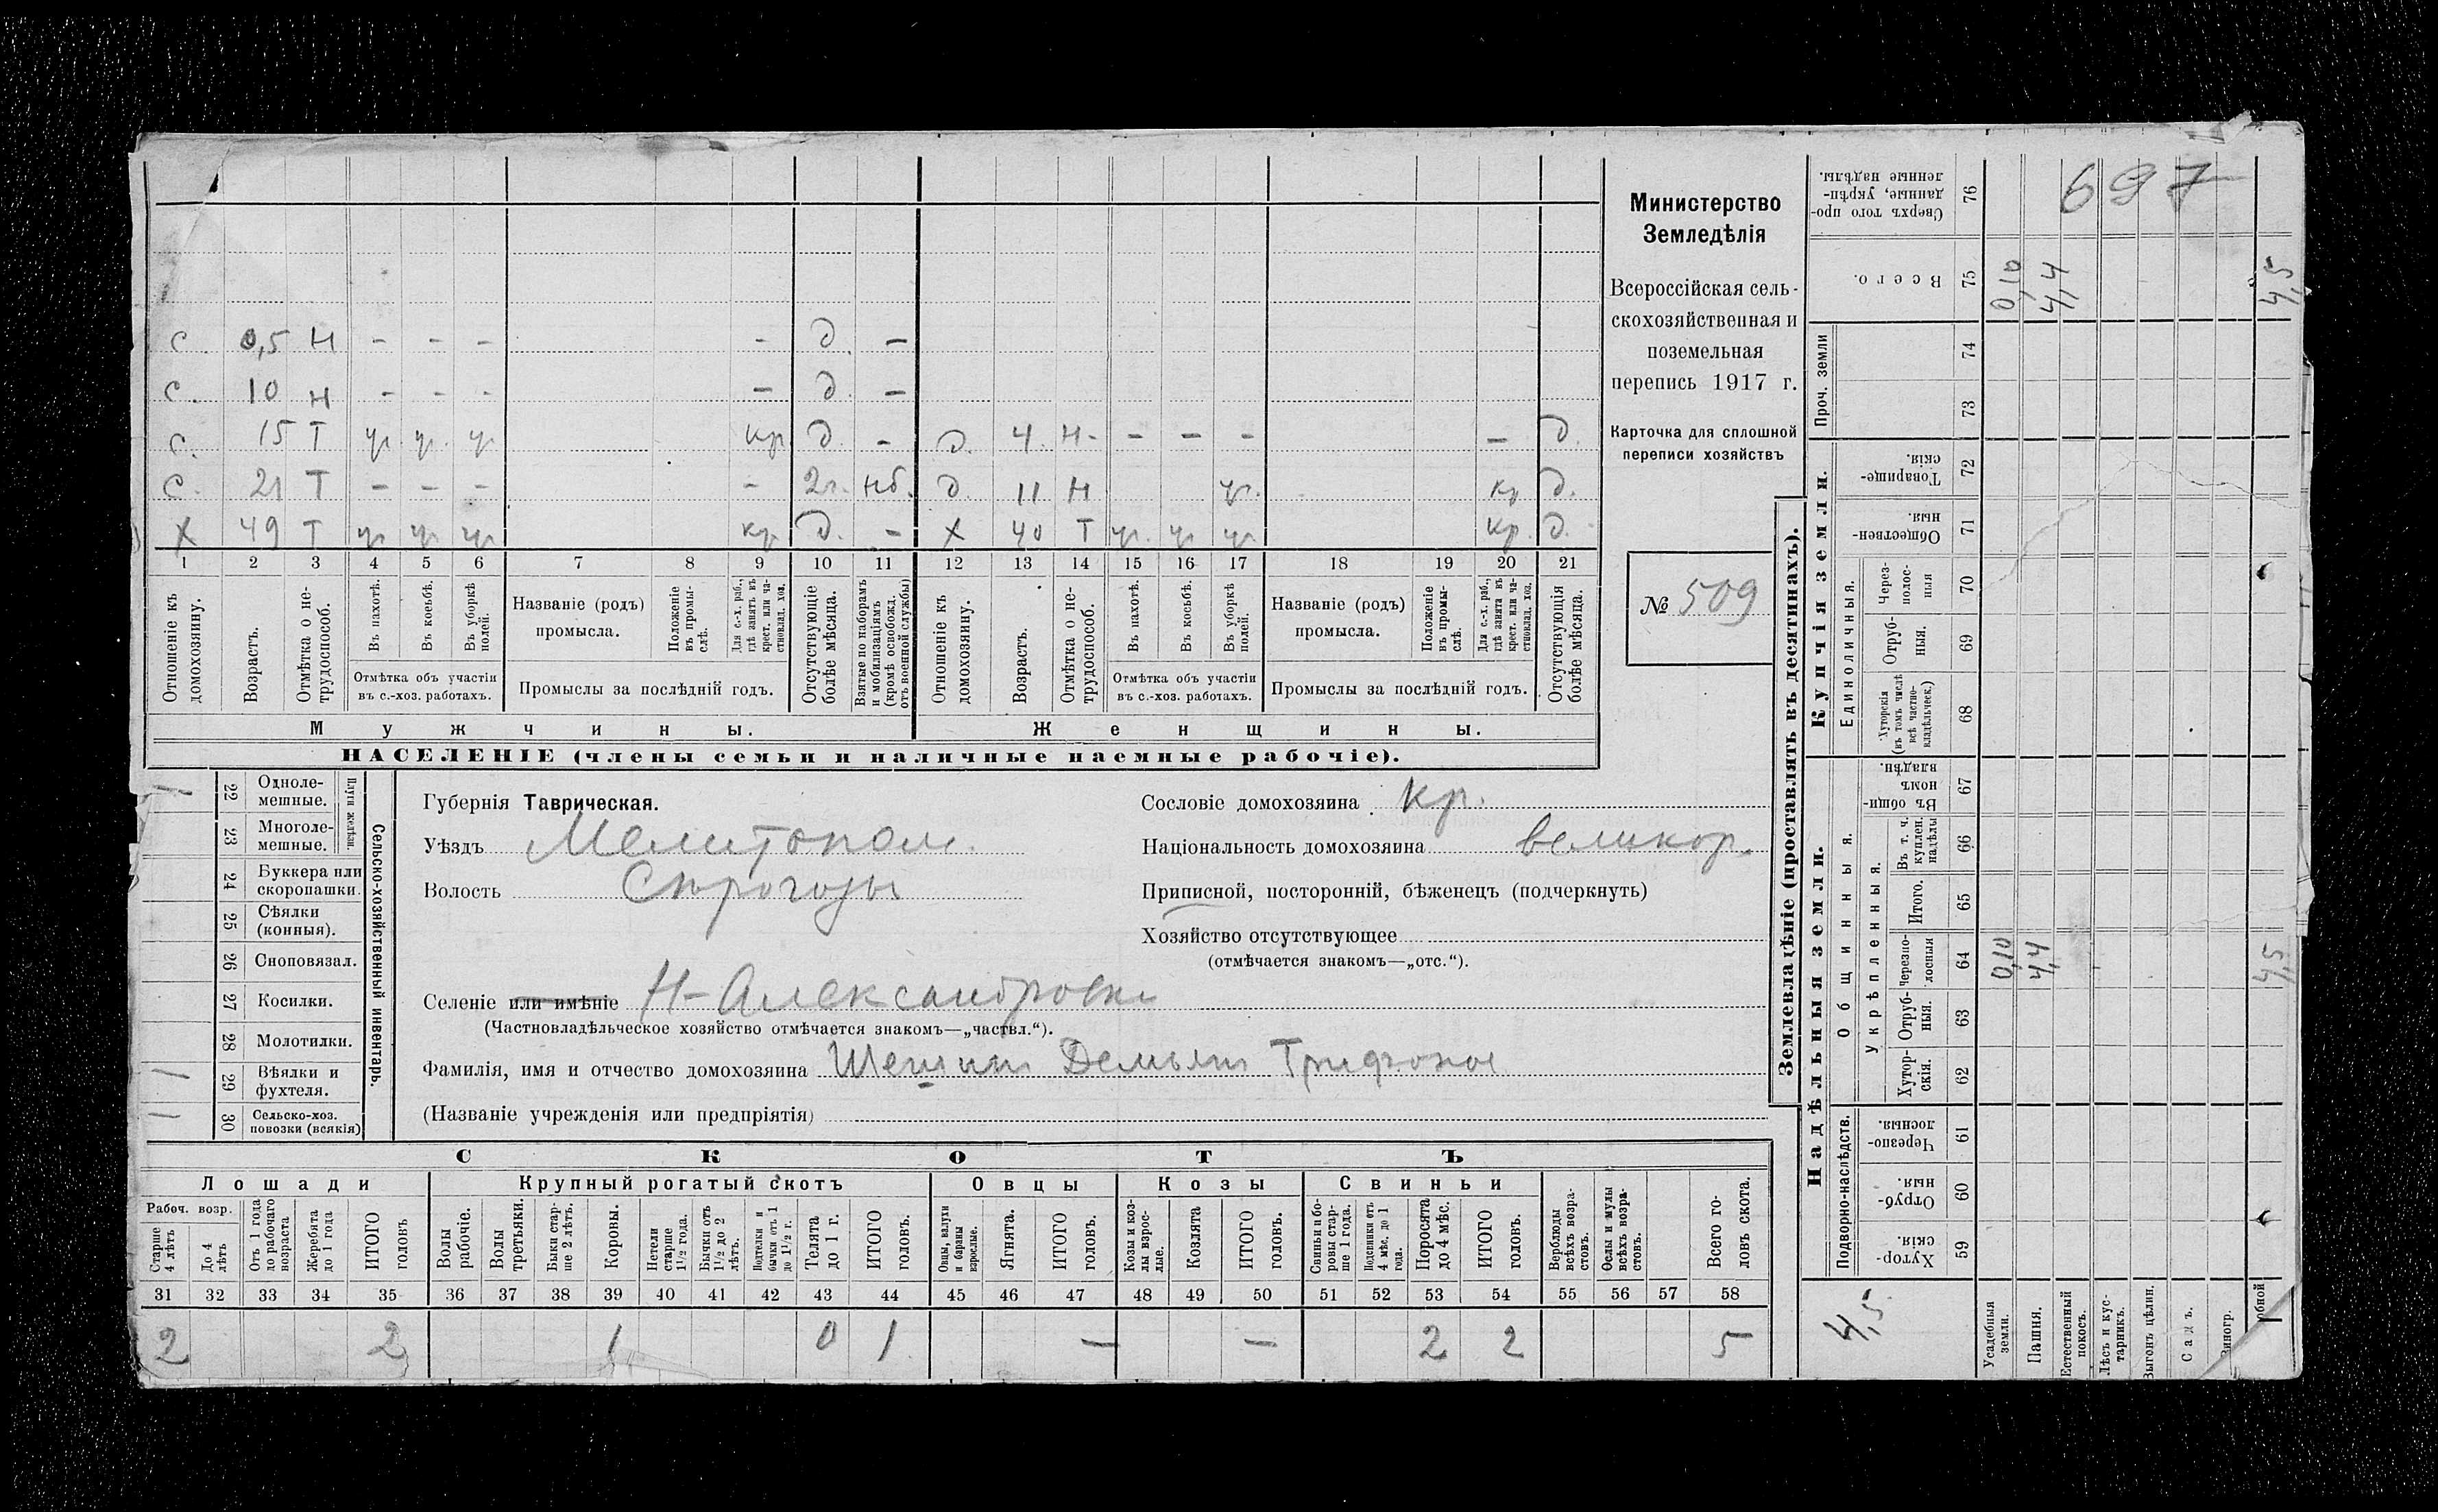 с. 0,5 Н - - - - д. -
с. 10 Н - - - - д. -
с. 15 Т уч. уч. уч. кр д. - д. 4. Н- - - - - д.
с. 21 Т - - - - 2г. нб. д. 11 Н уч. кр д.
х 49 Т уч. уч. уч. кр. д. - х 40 Т уч. уч. уч. кр. д.
1 2 3 4 5 6 7 8 9 10 11 12 13 14 15 16 17 18 19 20 21
Отношеніе къ домохозяину.
Возрастъ.
Отмѣтка о нетрудоспособ.
Въ пахотѣ.
Въ косьбѣ.
Въ уборкѣ полей.
Отмѣтка объ участіи
въ с.-хоз. работахъ.
Названіе (родъ)
промысла.
Положеніе въ промыслѣ.
Для с.-х. раб., гдѣ занятъ въ крест. или частновлад. хоз.
Промыслы за послѣдній годъ.
Отсутствующіе болѣе мѣсяца.
Взятые по наборамъ и мобилизаціямъ (кромѣ освобожд. отъ военной службы)
Отношеніе къ домохозяину.
Возрастъ.
Отмѣтка о нетрудоспособ.
Въ пахотѣ.
Въ косьбѣ.
Въ уборкѣ полей.
Отмѣтка объ участіи
въ с.-хоз. работахъ.
Названіе (родъ)
промысла.
Положеніе въ промыслѣ.
Для с.-х. раб., гдѣ занята въ крест. или частновлад. хоз.
Промыслы за послѣдній годъ.
Отсутствующія болѣе мѣсяца.
Мужчины.
Женщины.
НАСЕЛЕНІЕ (члены семьи и наличные наемные рабочіе).
Министерство
Земледѣлія
Всероссійская сель-
скохозяйственная и
поземельная
перепись 1917 г.
Карточка для сплошной
переписи хозяйствъ
№ 509
Сельско-хозяйственный инвентарь.
Плуги желѣзн.
1 22 Однолемешные.
23 Многолемешные.
24 Буккера или скоропашки.
25 Сѣялки (конныя).
26 Сноповязал.
27 Косилки.
28 Молотилки.
1 29 Вѣялки и фухтеля.
1 30 Сельско-хоз. повозки (всякія)
Губернія Таврическая.
Уѣздъ Мелитопол.
Волость Сѣрогозы
Селеніе или имѣніе Н-Александровка
(Частновладѣльческое хозяйство отмѣчается знакомъ—„частвл.“).
Фамилія, имя и отчество домохозяина Демьян Трифонов
(Названіе учрежденія или предпріятія)
Сословіе домохозяина кр.
Національность домохозяина великор.
Приписной, посторонній, бѣженецъ (подчеркнуть)
Хозяйство отсутствующее
(отмѣчается знакомъ—„отс.“).
СКОТЪ
Лошади Крупный рогатый скотъ Овцы Козы Свиньи
Рабоч. возр.
Старше 4 лѣтъ
До 4 лѣтъ
Отъ 1 года до рабочаго возраста
Жеребята до 1 года
ИТОГО головъ
Волы рабочіе.
Волы третьяки.
Быки старше 2 лѣтъ.
Коровы.
Нетели старше 1½ года.
Бычки отъ 1½ до 2 лѣтъ.
Подтелки и бычки отъ 1 до 1½ г.
Телята до 1 г.
ИТОГО головъ.
Овцы, валухи и бараны взрослые.
Ягнята.
ИТОГО головъ.
Козы и козлы взрослые.
Козлята
ИТОГО головъ.
Свиньи и боровы старше 1 года.
Подсвинки отъ 4 мѣс. до 1 года.
Поросята до 4 мѣс.
ИТОГО головъ.
Верблюды всѣхъ возрастовъ.
Ослы и мулы всѣхъ возрастовъ.
Всего головъ скота.
31 32 33 34 35 36 37 38 39 40 41 42 43 44 45 46 47 48 49 50 51 52 53 54 55 56 57 58
2 2 1 0 1 — — 2 2 5
Землевладѣніе (проставлять въ десятинахъ).
697
Сверхъ того проданные, укрѣпленные надѣлы. 76
Всего. 75 0,10 4,4 4,5
Проч. земли
74
73
Купчія земли.
Товарищескія. 72
Общественныя 71
Единоличныя.
Черезполосныя 70
Отрубныя. 69
Хуторскія (въ томъ числѣ всѣ частновладѣльческ.) 68
Надѣльныя земли.
Общинныя.
Въ общинномъ владѣн. 67
Укрѣпленныя.
Въ т. ч. куплен. надѣлы 66
Итого. 65
Черезполосныя 64 0,10 4,4 4,5
Отрубныя. 63
Хуторскія. 62
Подворно-наслѣдств.
Черезполосныя. 61
Отрубныя. 60
Хуторскія. 59
4,5
Усадебныя земли.
Пашня.
Естественный покосъ.
Лѣсъ и кустарникъ.
Выгонъ цѣлин.
Садъ.
Виногр.